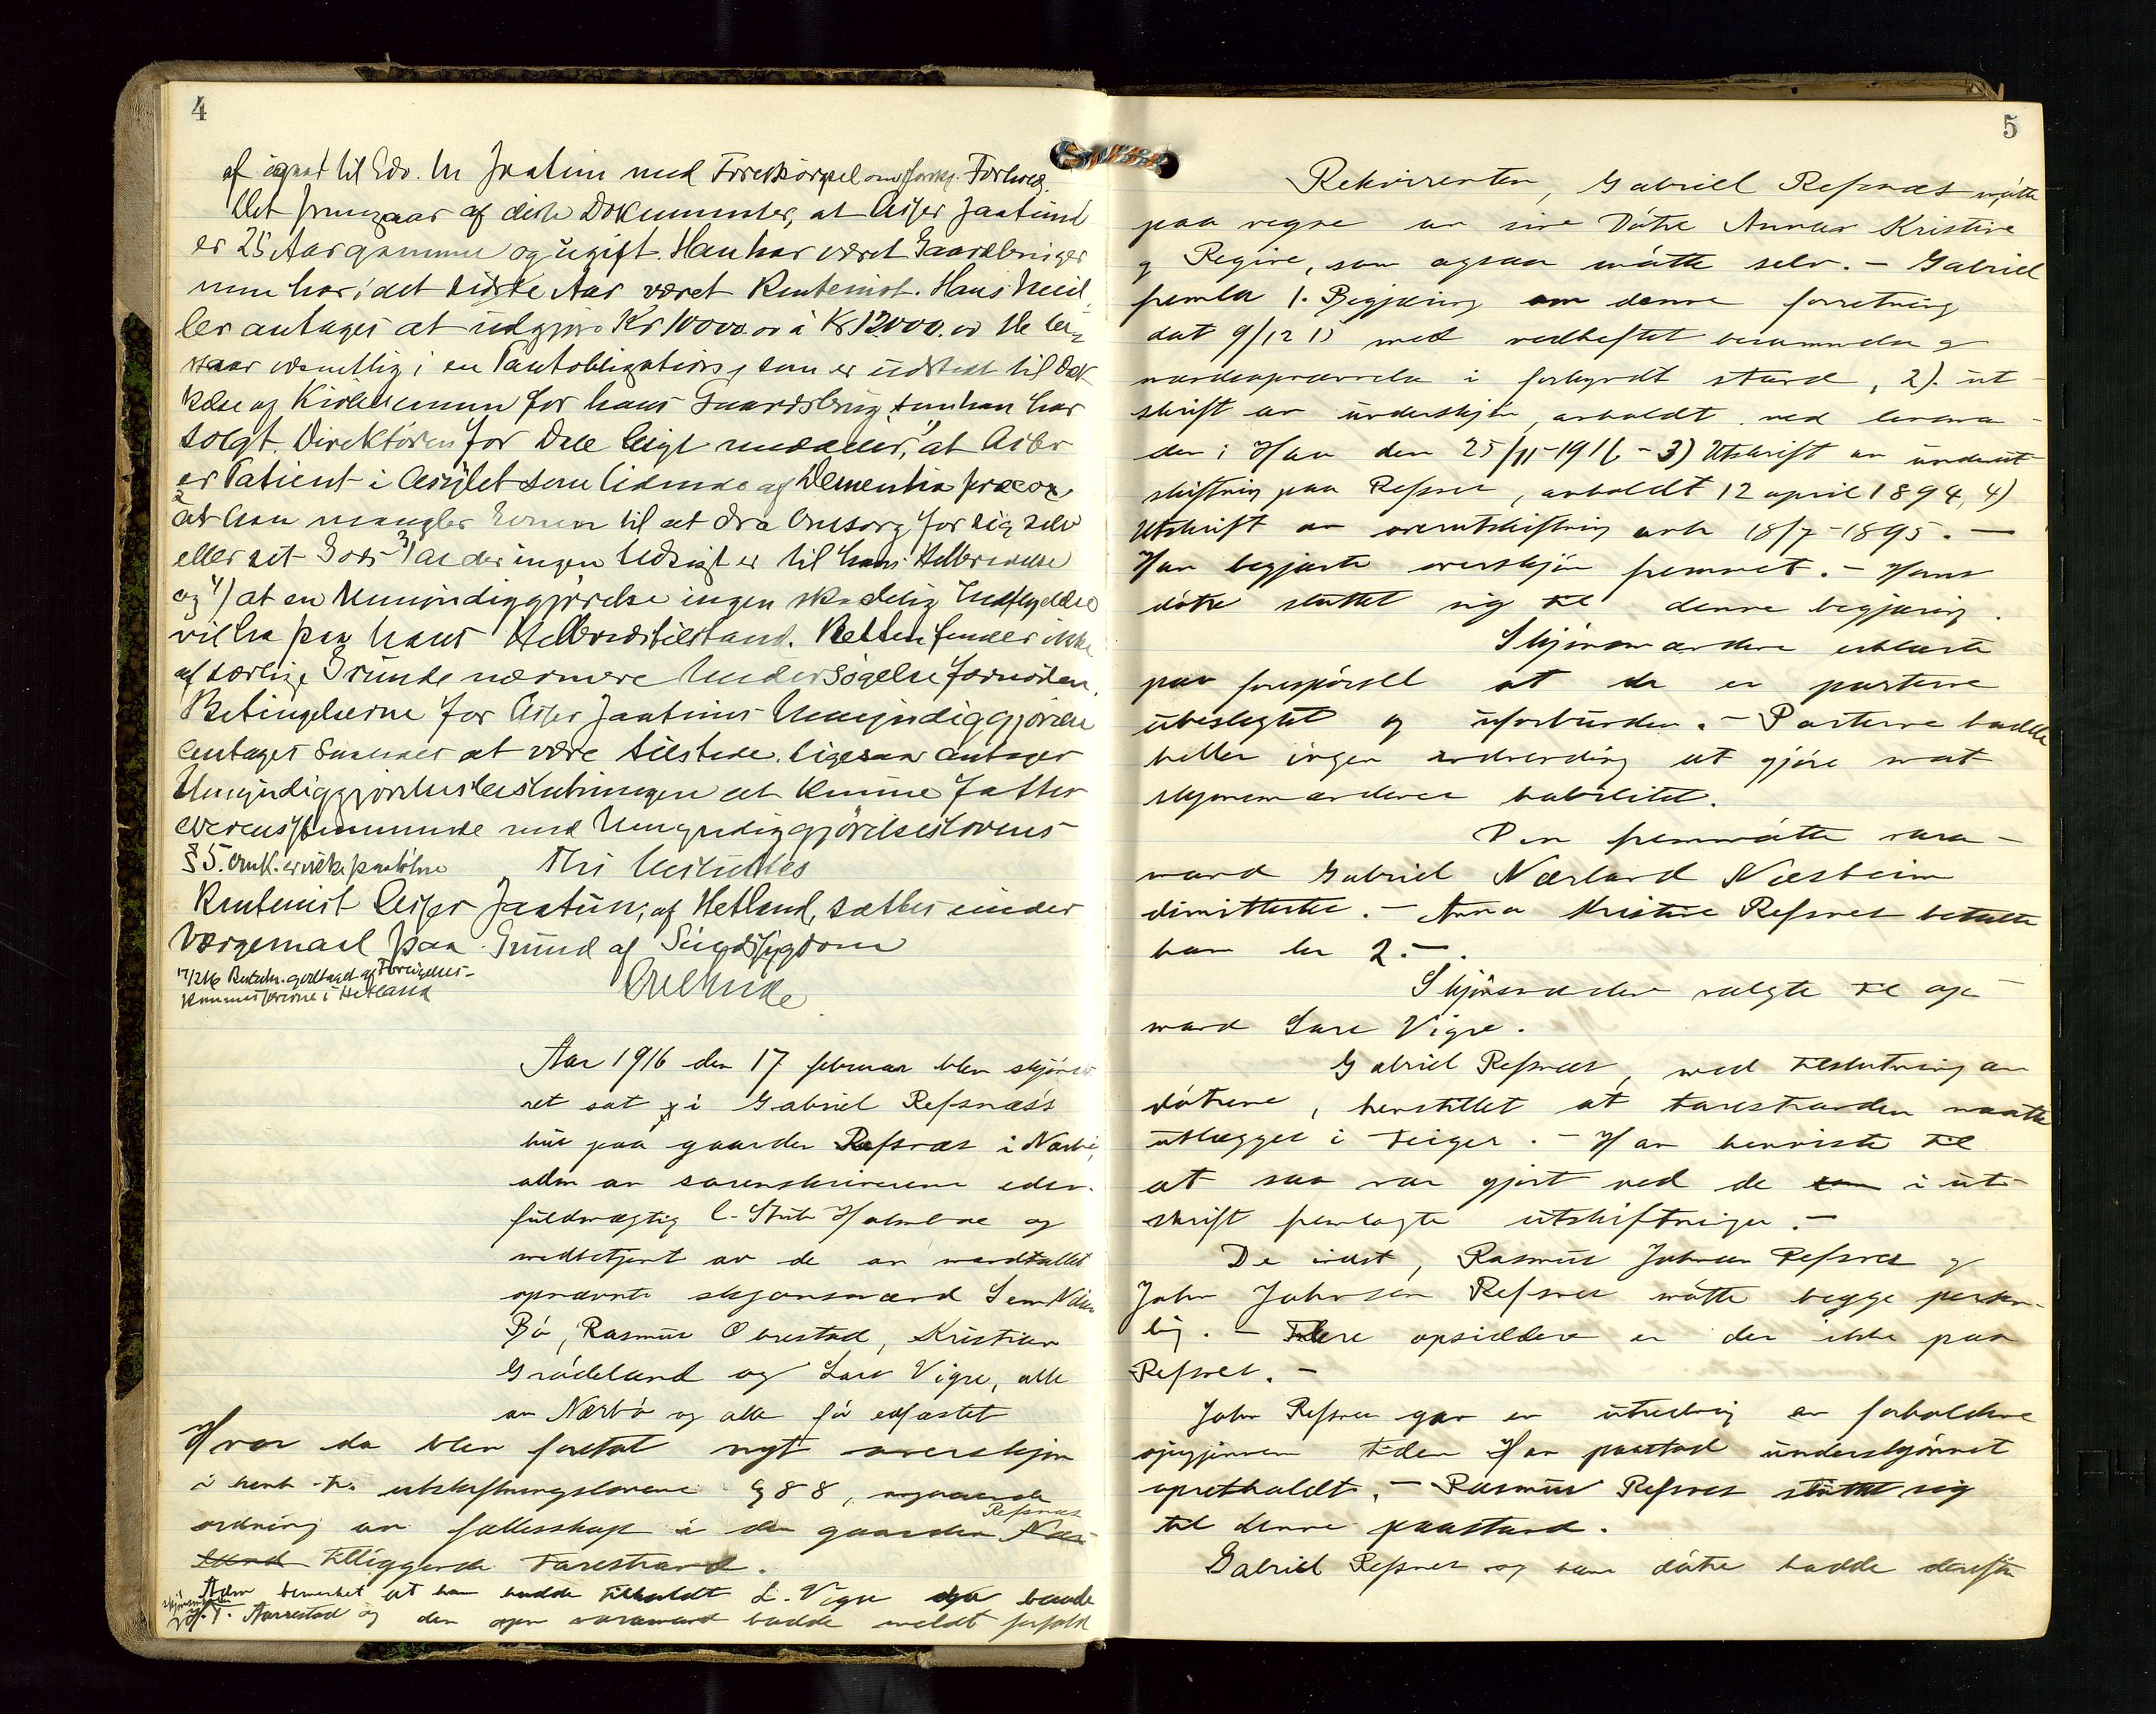 4
af igaar til Edv. M Jaatun med Forespörgsel om forskj. Forhold.
Det fremgaar af disse Dokumenter, at Asser Jaatun
er 25 Aar gammel og ugift. Han har været Gaardbruger
men har i det sidste Aar været Rentenist. Hans Mid
ler antages at udgjøre Kr 10000.00 à Kr 12000.00 De be
staar væsentlig i en Pantobligation, som er udstedt til Dæk
kelse af Kjöbesummen for hans Gaardsbrug, som han har
solgt. Direktören for Dale Asyl meddeler, 1) at Asser
er Patient i Asylet som lidende af Dementia præcox
2) at han mangler Evnen til at dra Omsorg for sig selv
eller sit Gods 3) at der ingen Udsigt er til hans Helbredelse
og 4) at en Umyndiggjørelse ingen skadelig Indflydelse
vil ha paa hans Helbredstilstand. Retten finder ikke
af særlige Grunde nærmere Undersögelse fornöden.
Betingelserne for Asser Jaatuns Umyndiggjørelse
antages saaledes at være tilstede. Ligesaa antages
Umyndiggjørelsesbeslutningen at kunne fattes
overensstemmende med Umyndiggjörelseslovens
§ 5. Omk. er ikke paastaaet Thi besluttes
Rentenist Asser Jaatun, af Hetland, sættes under
Værgemaal paa Grund af Sindssygdom
17/2 16
Kommissionen i Hetland
Aar 1916 den 17 februar blev skjöns
ret sat i Gabriel Refsnæs's
hus paa gaarden Refsnæs i Nærbö,
adm av sorenskriverens edsv.
fuldmægtig C. Stub Holmboe og
medbetjent av de av mandtallet
opnævnte skjønsmænd
Bö, Rasmus Obrestad, Kristian
Grödeland og Lars Vigre, alle
av Nærbö og alle för edfæstet
Hvor da blev foretat nyt overskjön
i henh. til utskiftningslovens § 88, angaaende
Refsnæs
ordning av fællesskap i den gaarden
land tilliggende tarestrand.
Adm bemerket at han hadde tilkaldt L. Vigre da baade
skjönsmanden
Aarrestad og den opn varamand hadde meldt forfald
5
Rekvirenten, Gabriel Refsnæs mötte
paa vegne av sine Dötre Anna Kristine
og Regine, som ogsaa mötte selv. – Gabriel
fremla 1. Begjæring om denne forretning
dat 9/12 15 med vedheftet berammelse og
mandsopnævnelse i forkyndt stand, 2). ut-
skrift av underskjön, avholdt ved lensma-
den i Haa den 25/11-191 – 3) Utskrift av underut
skiftning paa Refsnes, avholdt 12 april 1894, 4)
Utskrift av overutskiftning avh 18/7-1895. –
Han begjærte overskjön fremmet. – Hans
dötre sluttet sig til denne begjæring.
Skjönsmændene erklærte
paa forespörsel at de er parterne
ubeslegtet og uforbunden. – Parterne hadde
heller ingen indvending at gjöre mot
skjönsmændenes habilitet.
Den fremmötte vara-
mand Gabriel Nærland Næsheim
dimittertes. – Anna Kristine Refsnes betalte
ham kr 2.–.
Skjönsmændene valgte til op-
mand Lars Vigre.
Gabriel Refsnæs, med tilslutning av
dötrene, henstillet at tarestranden maatte
utlægges i teiger. – Han henviste til
at saa var gjort ved de i ut-
skrift fremlagte utskiftninger. –
De indst, Rasmus Johnsen Refsnes og
John Johnsen Refsnes mötte begge person-
lig. – Flere opsiddere er der ikke paa
Refsnes. –
John Refsnes gav en utredning av forholdene
opigjennem tiden Han paastod underskjönnet
opretholdt. – Rasmus Refsnes sluttet sig
til denne paastand.
Gabriel Refsnes og hans dötre hadde derefter